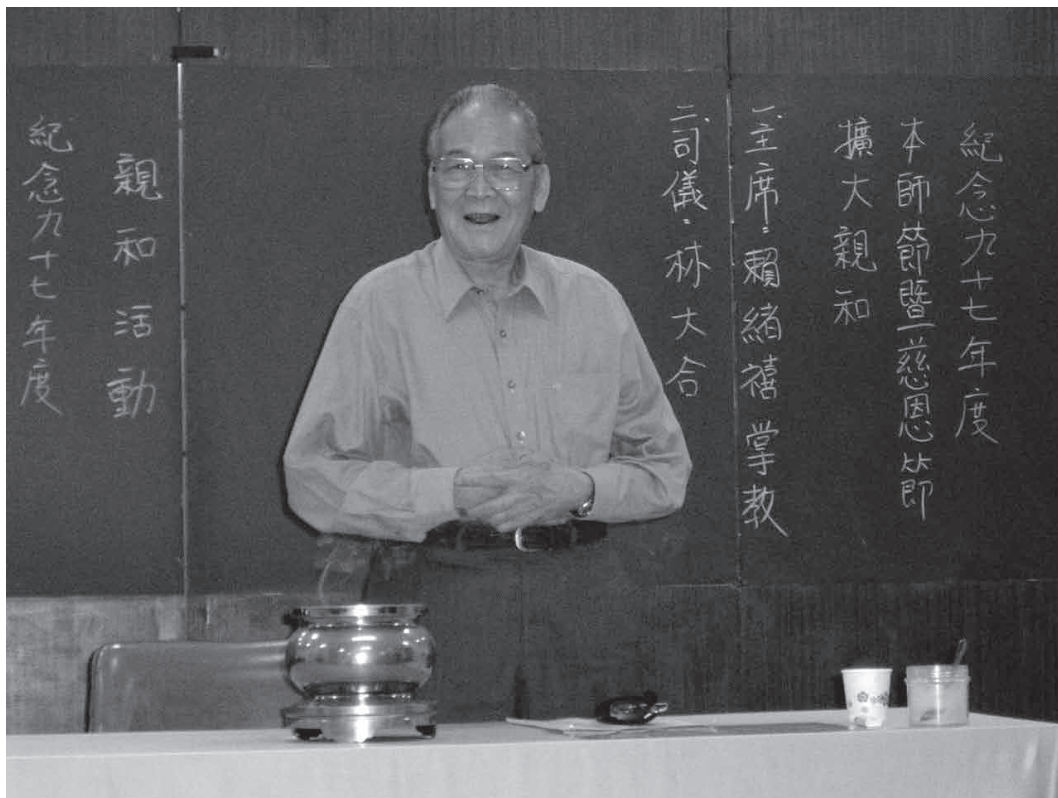 紀念九十七年度
本師節暨慈恩節
擴大親和
一、主席：賴緒禧掌教
二、司儀：林大合
親和活動
紀念九十七年度